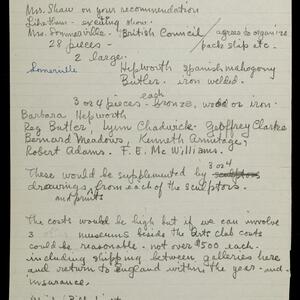 Mrs. Shaw on your recommendation
Like them - exciting show.
Mrs. Sommerville - British Council / agrees to organize
28 pieces - pack ship etc -
2 large.
Somerville Hepworth Spanish mahogony
Butler. iron welded.
each
3 or 4 pieces - bronze, wood or iron.
Barbara Hepworth
Reg Butler, Lynn Chadwick. Geoffrey Clarke
Bernard Meadows, Kenneth Armitage,
Robert Adams. F. E. Mc Williams.
3 or 4
These would be supplemented by sculptors
drawings from each of the sculptors.
and prints
The costs would be high but if we can involve
3 museums beside the Arts Club costs
could be reasonable - not over $500 each -
including shipping between galleries here
and return to England within the year - and
insurance.